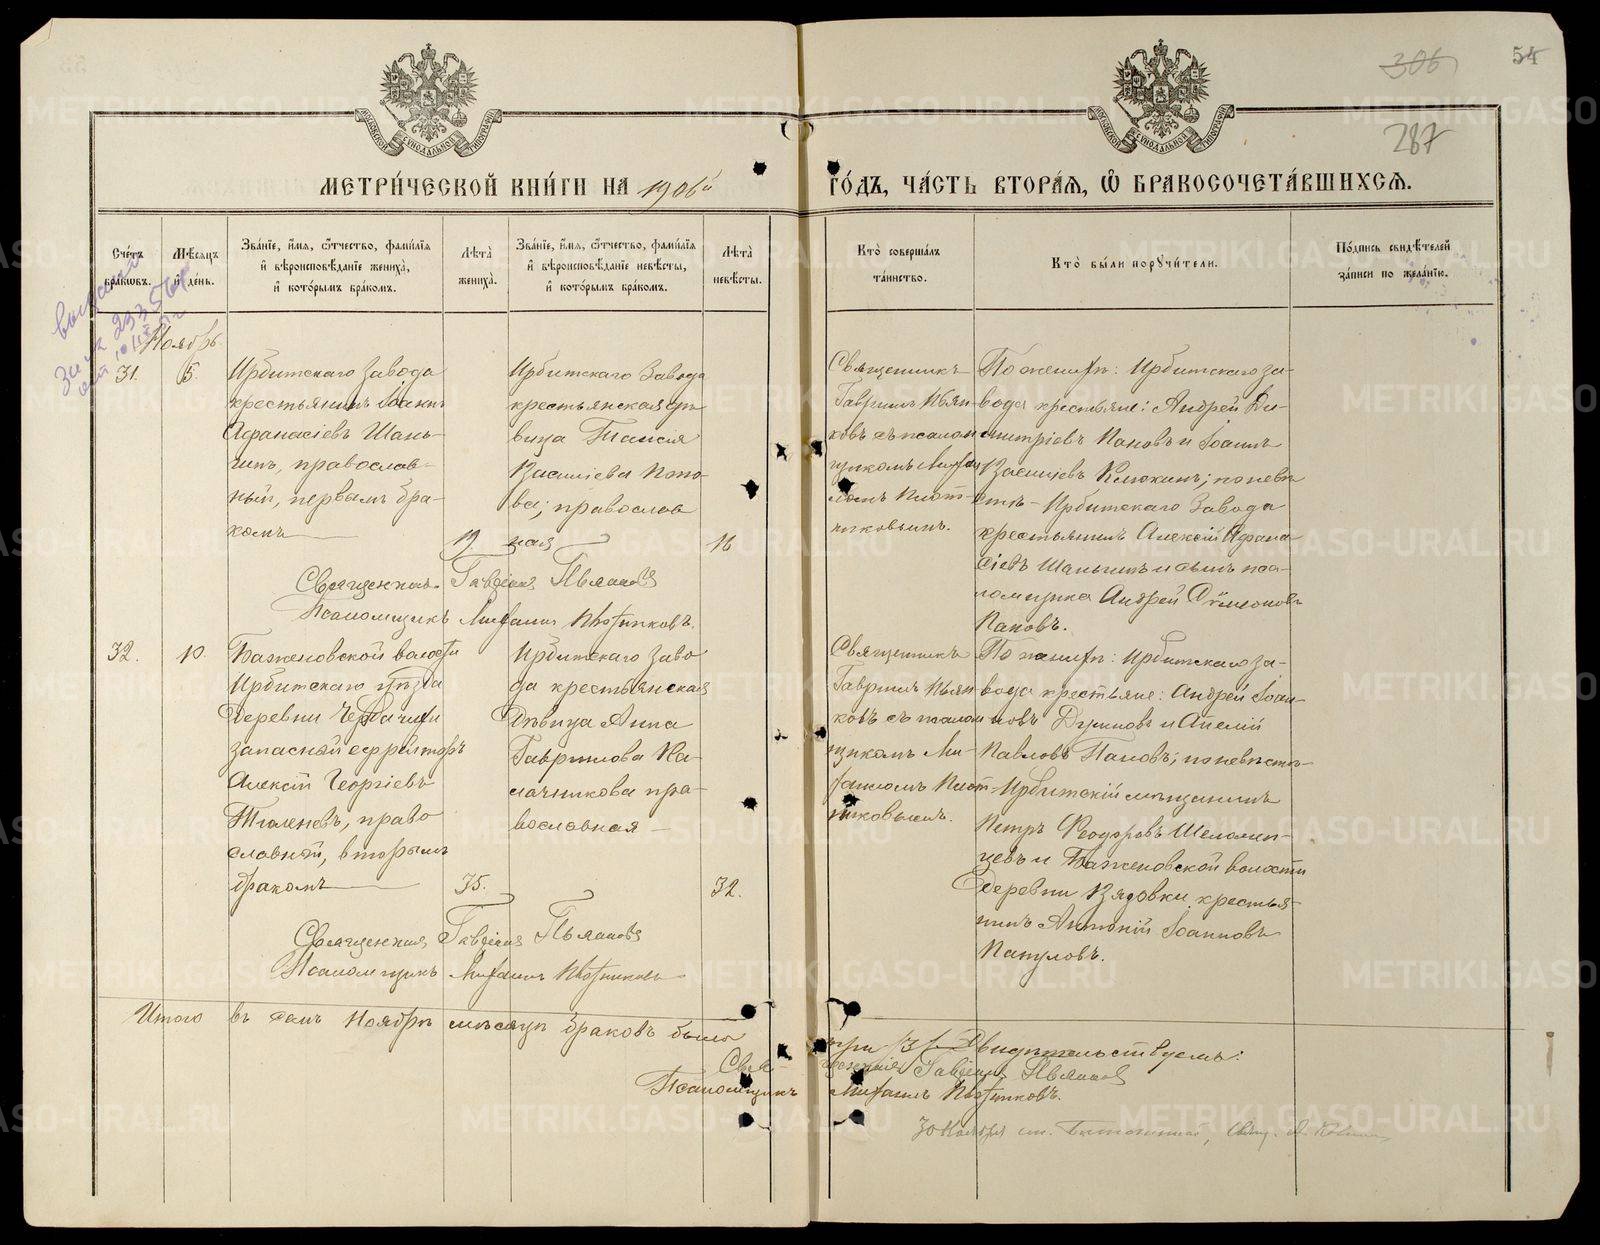 54
306
287
МЕТРИ́ЧЕСКОЙ КНИ́ГИ НА 1906й ГО́ДЪ, ЧА́СТЬ ВТОРА́Я, Ѡ БРАКОСОЧЕТА́ВШИХСЯ.
Сче́тъ бра́ковъ.
Мѣ́сяцъ и́ де́нь.
Зва́нїе, и́мя, ѻ́тчество, фамилїя и вѣроисповѣ́данїе жениха̀, и кото́рымъ бра́комъ.
Лѣта̀ жениха̀.
Зва́нїе, и́мя, ѻ́тчество, фамилїя и вѣроисповѣ́данїе невѣ́сты, и кото́рымъ бра́комъ.
Лѣта̀ невѣ́сты.
Кто̀ соверша́лъ та́инство.
Кто̀ бы́ли пору́чители.
По́дпись свидѣ́телей за́писи по жела́нїю.
Ноябрь
31.
5.
Ирбитскаго завода
крестьянинъ Іоаннъ
Афанасіевъ Шань-
гинъ, православ-
ный, первымъ бра-
комъ
19.
Ирбитскаго Завода
крестьянская дѣ-
вица Таисія
Василіева Пано-
ва; православ
ная
16
Священникъ
Гавріилъ Пьян-
ковъ съ псалом
щикомъ Мифаи
ломъ Плот-
никовымъ.
По женихѣ: Ирбитскаго за-
вода крестьяне: Андрей Ди-
митріевъ Пановъ и Іоаннъ
Василіевъ Клюкинъ; по невѣ
стѣ - Ирбитскаго Завода
крестьянинъ Алексій Афана-
сіевъ Шаньгинъ и сынъ пса-
ломщика Андрей Симеоновъ
Пановъ.
Священникъ Гавріилъ Пьянковъ
Псаломщикъ Мифаилъ Плотниковъ.
32.
10.
Баженовской волости
Ирбитскаго уѣзда
деревни
запасный ефрейторъ
Алексій Георгіевъ
Тюленевъ, право
славный, вторымъ
бракомъ
35.
Ирбитскаго заво
да крестьянская
дѣвица Анна
Гавріилова Ка-
лачникова пра-
вославная
32.
Священникъ
Гавріилъ Пьян
ковъ съ псалом
щикомъ Ми-
фаиломъ Плот-
никовымъ.
По женихѣ: Ирбитскаго за-
вода крестьяне: Андрей Іоан-
новъ и
Павловъ Пановъ; по невѣстѣ-
Ирбитскій мѣщанинъ
Петръ Ѳеодоровъ Шеломен-
цевъ и Баженовской волости
деревни Вязовки крестья-
нинъ Антоній Іоанновъ
Пятуловъ.
Священникъ Гавріилъ Пьянковъ
Псаломщикъ Мифаилъ Плотниковъ
Итого въ семъ Ноябрѣ мѣсяцѣ браковъ было три /3/ Свидѣтельствуемъ:
Священникъ Гавріилъ Пьянковъ
Псаломщикъ Мифаилъ Плотниковъ.
METRIKI.GASO-URAL.RU